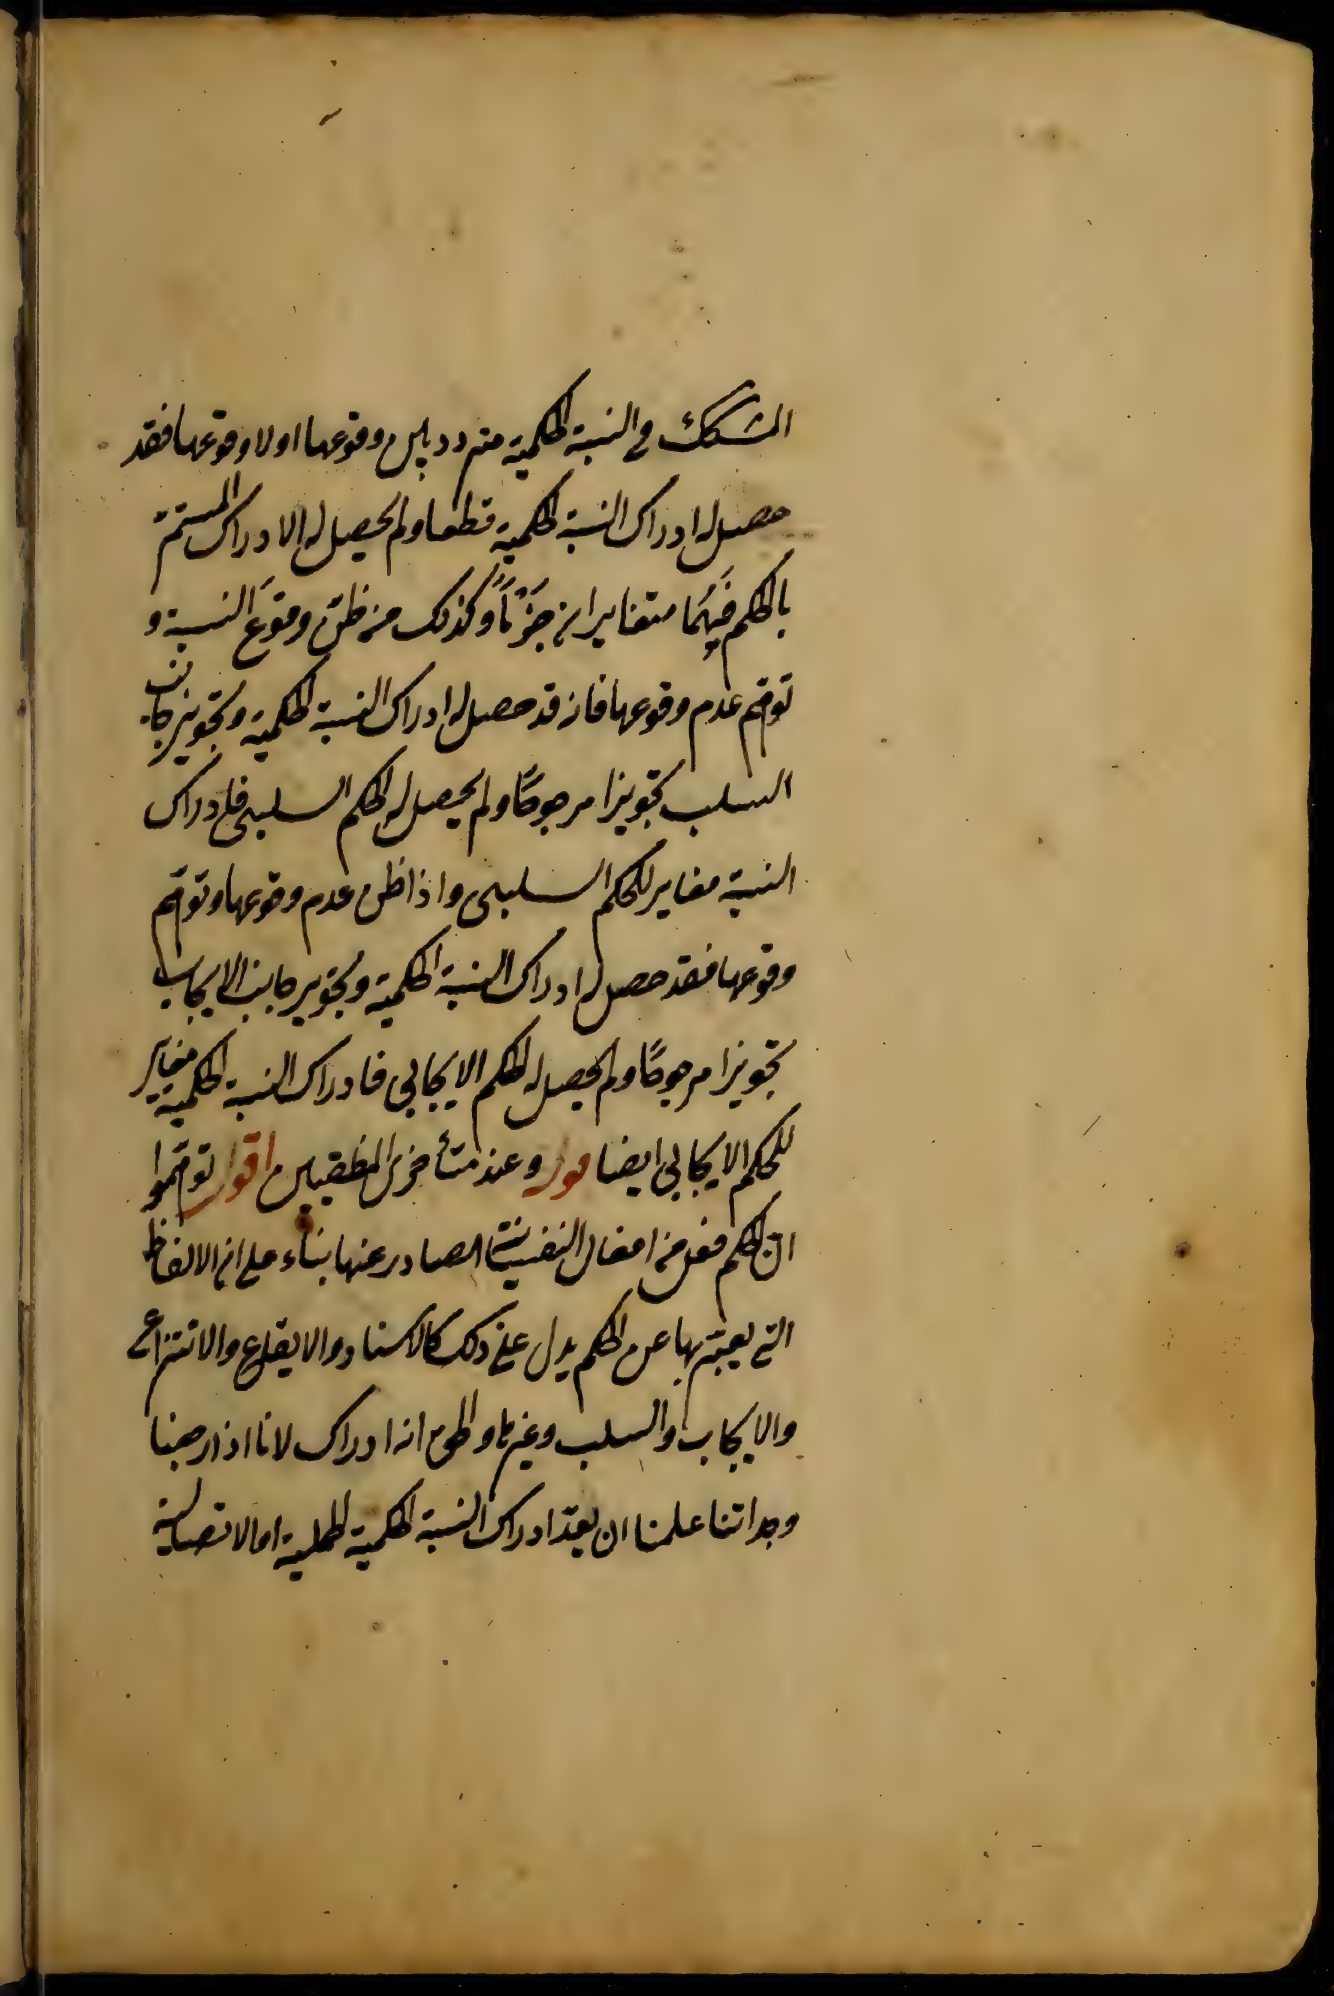 المشكك في النسبة الحكمية متردد بين وقوعها اولا وقوعها فقد
حصل له ادراك النسبة الحكمية قطعا ولم يحصل له الادراك المسمّى
بالحكم فَهُمَا متغايران جَزْمًا وكذلك من ظنّ وقوعَ النسبة و
توهّم عدم وقوعها فانه قد حصل له ادراك النسبة الحكمية وتجويز جانب
السلب تجويزا مرجوحًا ولم يحصل له الحكم السلبى فادراك
النسبة مغاير للحكم السلبى واذا ظن عدم وقوعها وتوهّم
وقوعها فقد حصل له ادراك النسبة الحكمية وتجويز جانب الايجاب
تجويزا مرجوحًا ولم يحصل له الحكم الايجابي فادراك النسبة الحكمية مغاير
للحكم الايجابي ايضا قوله وعند متأخرى المنطقيين اقول توهّموا
انّ الحكم فعل من افعال النفس الصادر عنها بناء على ان الالفاظ
التي يعبّر بها عن الحكم يدل على ذلك كالاسناد والايقاع والانتزاع
والايجاب والسلب وغيرها والحق انه ادراك لانا اذا رجعنا
وجداننا علمنا ان بعد ادراك النسبة الحكمية الحملية او الاتصالية